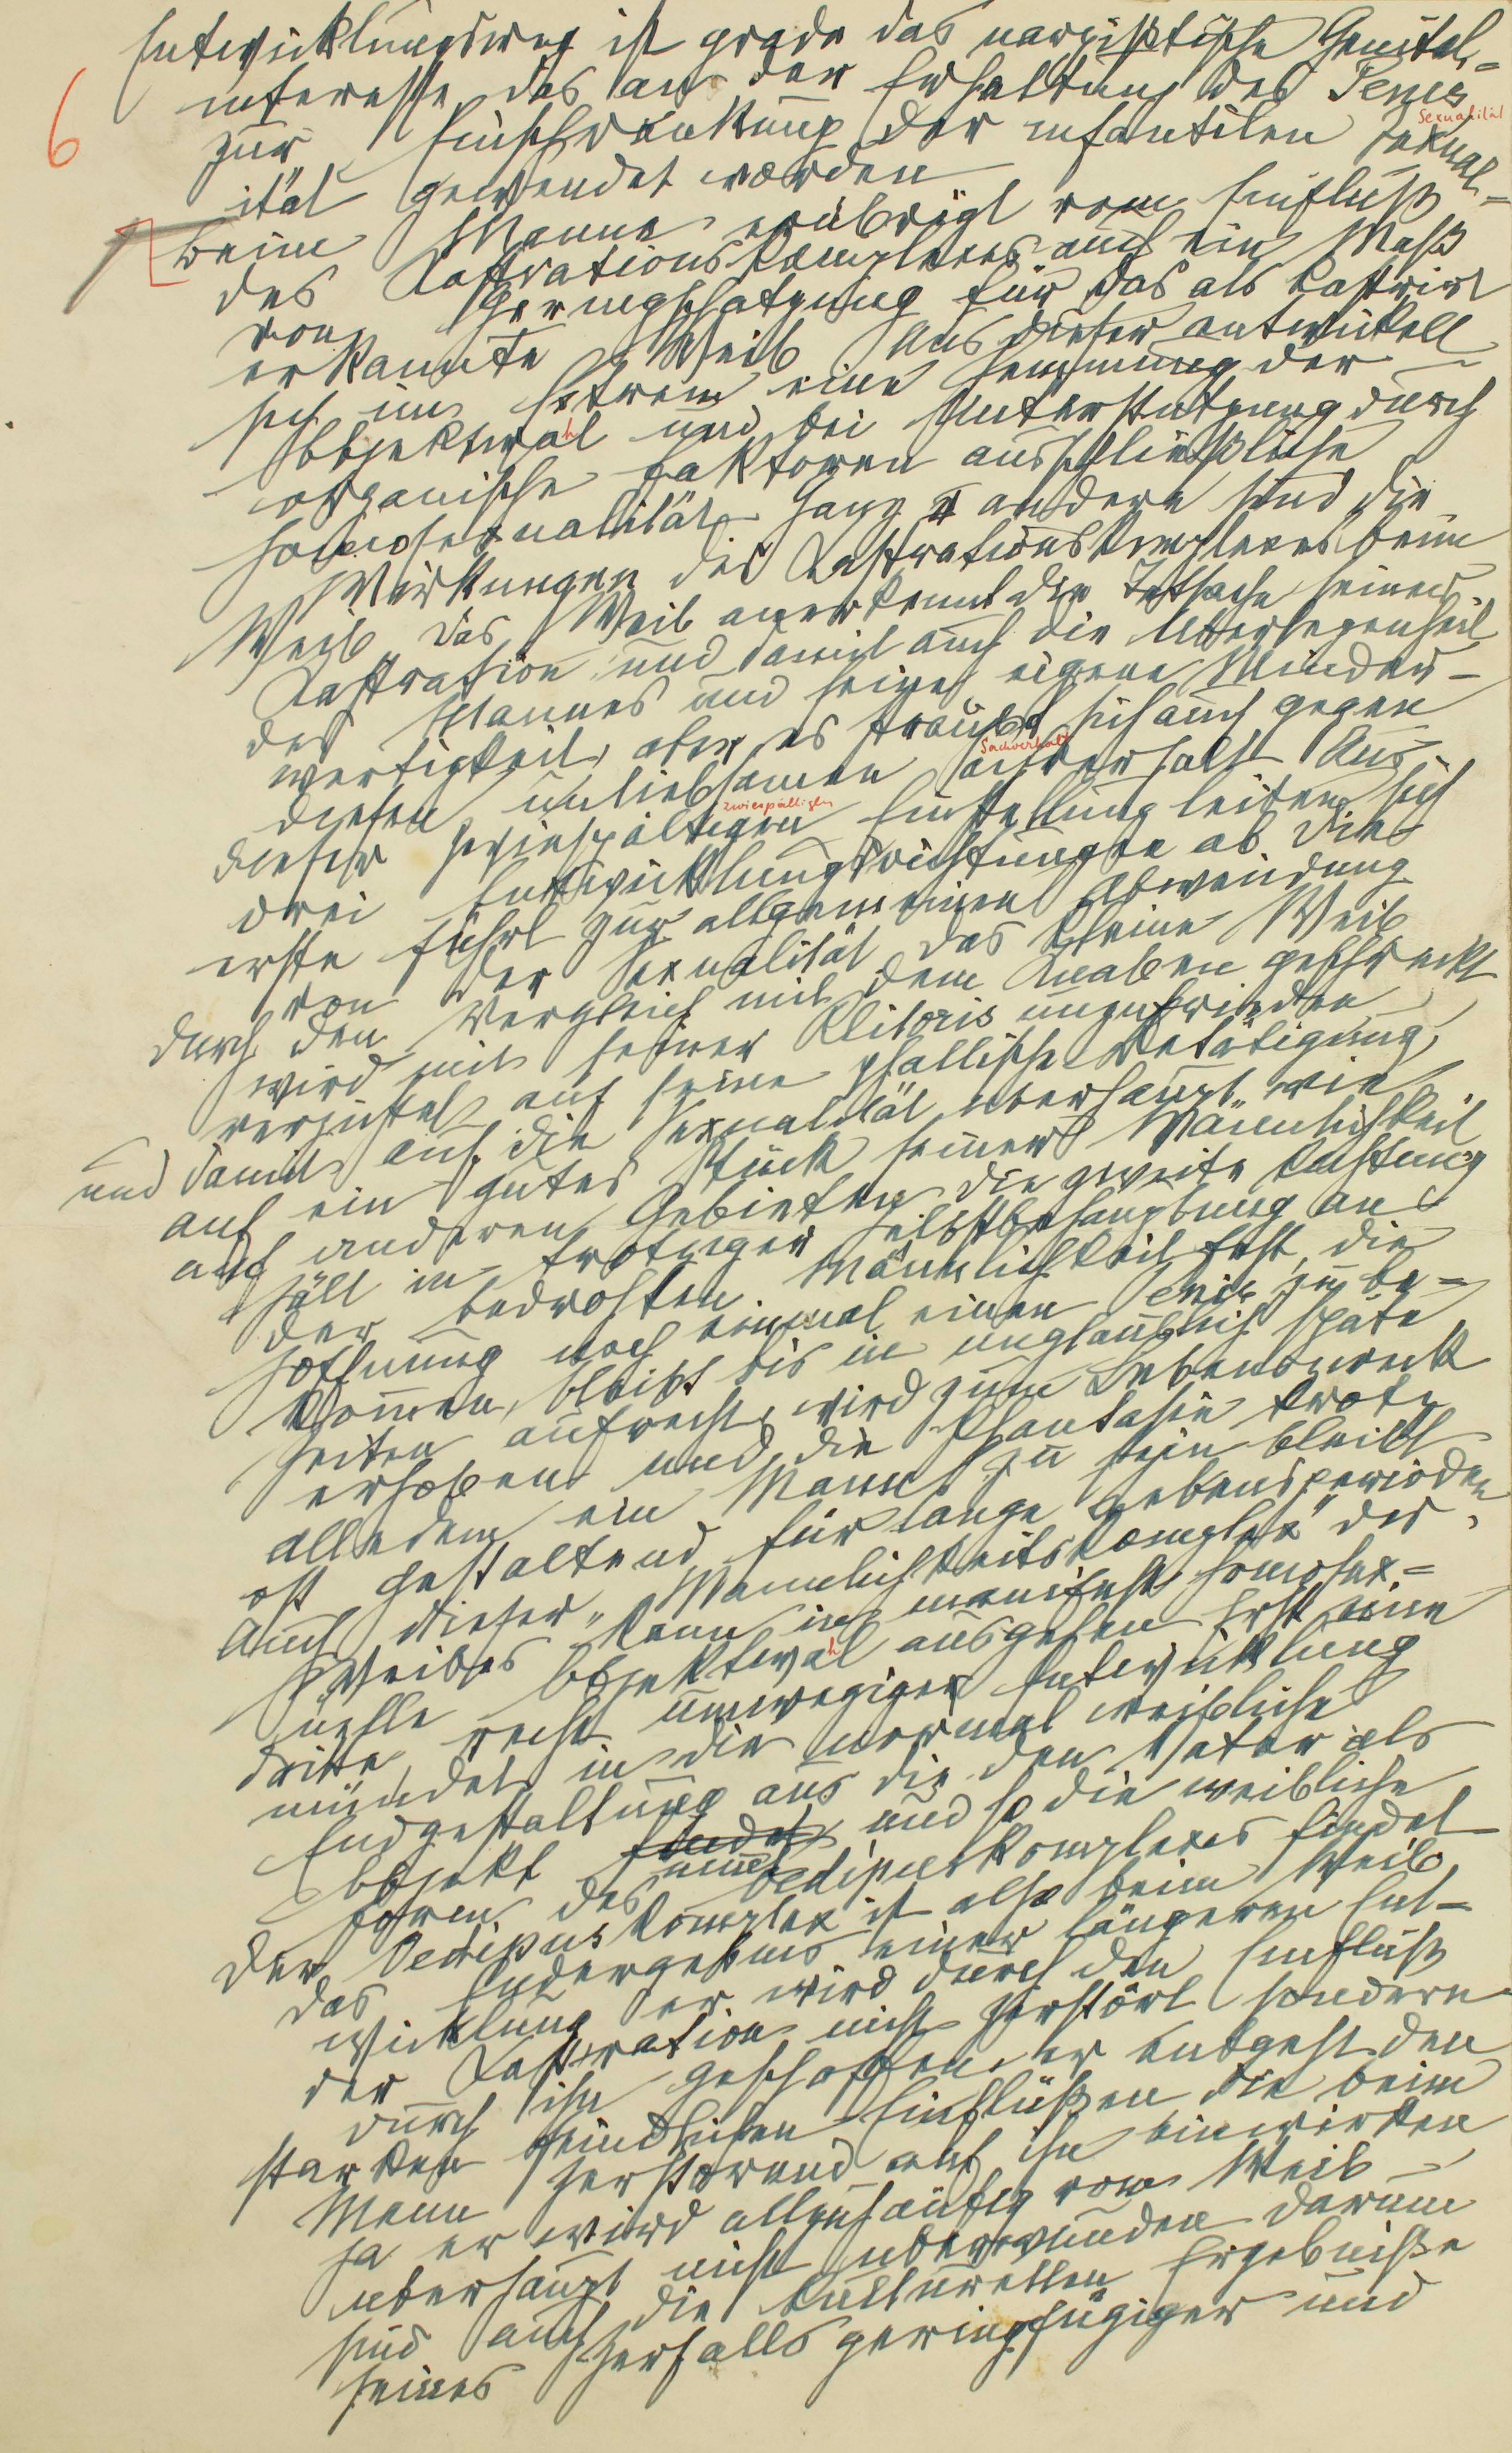 Entwicklungsweg ist grade das narzißtische Genital-
interesse, das an der Erhaltung des Penis
6
Sexualität
zur Einschränkung der infantilen Sexual-
ität gewendet worden
beim Manne erübrigt vom Einfluß
des Kastrationskomplexes auch ein Maß
von Geringschätzung für das als kastrirt
erkannte Weib Aus dieser entwickelt
sich im Extrem eine Hemmung der
Objektwahl und bei Unterstützung durch
organische Faktoren ausschließliche
Homosexualität. Ganz andere sind die
Wirkungen des Kastrationskomplexes beim
Weib. Das Weib anerkennt die Tatsache seiner
Kastration und damit auch die Überlegenheit
des Mannes und seine eigene Minder-
wertigkeit, aber es sträubt sich auch gegen
Sachverhalt
diesen unliebsamen Sachverhalt Aus
zwiespältigen
dieser zwiespältigen Einstellung leiten sich
drei Entwicklungsrichtungen ab Die
erste führt zur allgemeinen Abwendung
von der Sexualität Das kleine Weib
durch den Vergleich mit dem Knaben geschreckt
wird mit seiner Klitoris unzufrieden,
verzichtet auf seine phallische Betätigung,
und damit auf die Sexualität überhaupt wie
auf ein gutes Stück seiner Männlichkeit
auf anderen Gebieten die zweite Richtung
hält in trotziger Selbstbehauptung an
der bedrohten Männlichkeit fest, die
Hoffnung noch einmal einen Penis zu be-
kommen, bleibt bis in unglaublich späte
Zeiten aufrecht, wird zum Lebenszweck
erhoben und die Phantasie trotz
alledem ein Mann zu sein bleibt
oft gestaltend für lange Lebensperioden
Auch dieser „Männlichkeitskomplex" des
Weibes kann in manifest homosex-
uelle Objektwahl ausgehen Erst eine
dritte, recht umwegige Entwicklung
mündet in die normal weibliche
Endgestaltung aus die den Vater als
Objekt nimmt und so die weibliche
Form des Oedipuskomplexes findet
Der Oedipuskomplex ist also beim Weib
das Endergebnis einer längeren Ent-
wicklung er wird durch den Einfluß
der Kastration nicht zerstört sondern
durch ihn geschaffen, er entgeht den
starken feindlichen Einflüßen die beim
Mann zerstörend auf ihn einwirken
ja er wird allzuhäufig vom Weib
überhaupt nicht überwunden Darum
sind auch die kulturellen Ergebniße
seines Zerfalls geringfügiger und